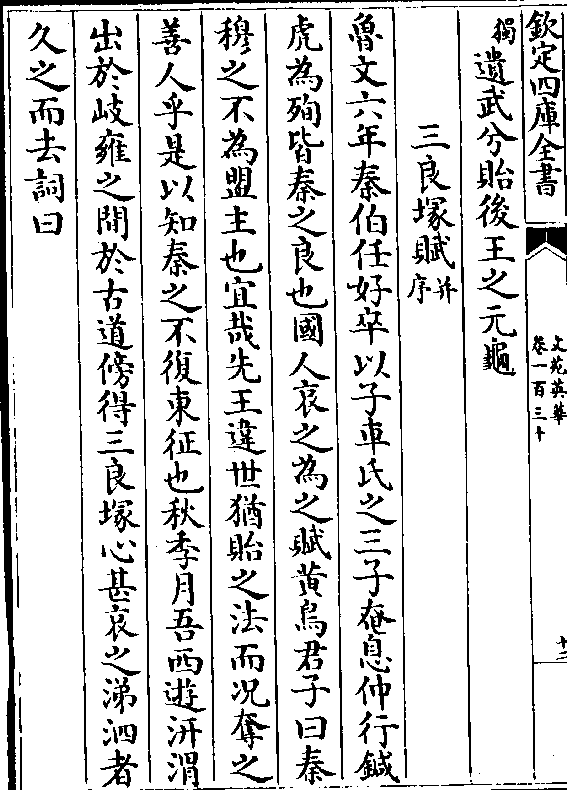 欽定四庫全書
文苑英華
卷一百三十
十二
獨遺武分貽後王之元龜
三良塚賦并序
魯文六年秦伯任好卒以子車氏之三子奄息仲行鍼
虎為殉皆秦之良也國人哀之為之賦黃鳥君子曰秦
穆之不為盟主也宜哉先王違世猶貽之法而况奪之
善人乎是以知秦之不復東征也秋季月吾西遊汧渭
出於岐雍之間於古道傍得三良塚心甚哀之涕泗者
久之而去詞曰